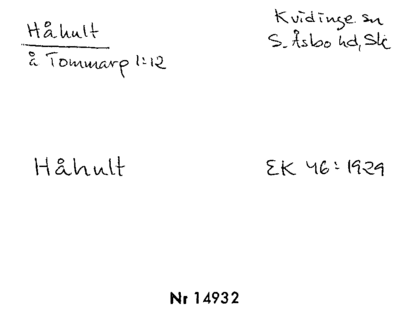 Håhult
å Tommarp 1:12
Kvidinge sn
S. Åsbo hd, Sk
Håhult
EK 46:1929
Nr 14932